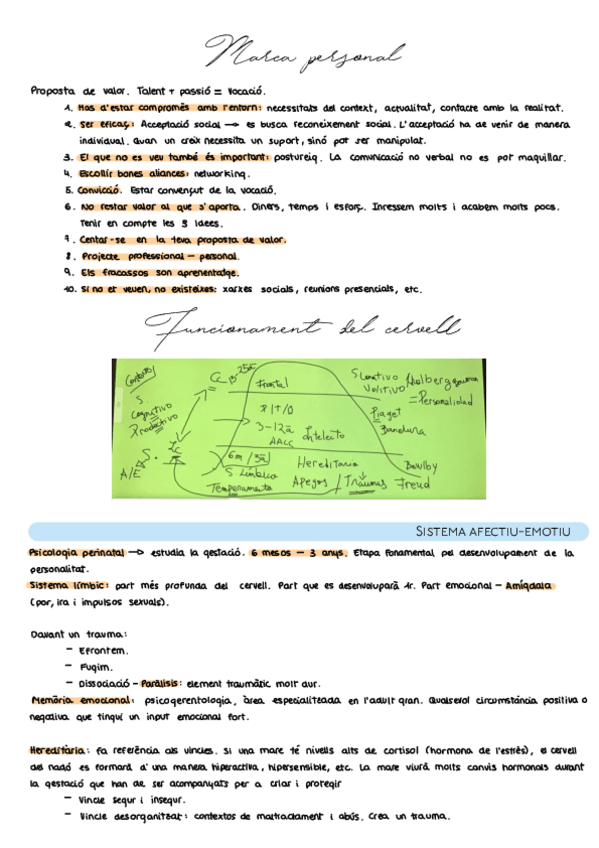 Marca personal
Proposta de valor. Talent + passió = vocació.
1. Has d'estar compromès amb l'entorn: necessitats del context, actualitat, contacte amb la realitat.
2. Ser eficaç: Acceptació social → es busca reconeixement social. L'acceptació ha de venir de manera
individual. Quan un creix necessita un suport, sinó pot ser manipulat.
3. El que no es veu també és important: postureig. La comunicació no verbal no es pot maquillar.
4. Escollir bones aliances: networking.
5. Convicció. Estar convençut de la vocació.
6. No restar valor al que s'aporta. Diners, temps i esforç. Inressem molts i acabem molts pocs.
Tenir en compte les 3 idees.
7. Centar-se en la teva proposta de valor.
8. Projecte professional – personal.
9. Els fracassos son aprenentatge.
10. Si no et veuen, no existeixes: xarxes socials, reunions presencials, etc.
Funcionament del cervell
Contexto
S.
Cognitivo
Productivo
S.
A/E
Frontal
3-12a
AACC
Intelecto
6m / 3a
S. Límbico
Temperamento
Hereditario
Apegos / Traumas
Volitivo
Kholberg
= Personalidad
Piaget
Bandura
Bowlby
Freud
SISTEMA AFECTIU-EMOTIU
Psicologia perinatal → estudia la gestació. 6 mesos – 3 anys. Etapa fonamental pel desenvolupament de la
personalitat.
Sistema límbic: part més profunda del cervell. Part que es desenvoluparà 1r. Part emocional – Amígdala
(por, ira i impulsos sexuals).
Davant un trauma:
- Efrontem.
- Fugim.
- Dissociació – Paràlisis: element traumàtic molt dur.
Memòria emocional: psicogerentologia, àrea especialitzada en l'adult gran. Qualsevol circumstància positiva o
negativa que tingui un input emocional fort.
Hereditària: Fa referència als vincles. Si una mare té nivells alts de cortisol (hormona de l'estrès), el cervell
del nadó es formarà d'una manera hiperactiva, hipersensible, etc. La mare viurà molts canvis hormonals durant
la gestació que han de ser acompanyats per a criar i protegir
- Vincle segur i insegur.
- Vincle desorganitzat: contextos de maltractament i abús. Crea un trauma.